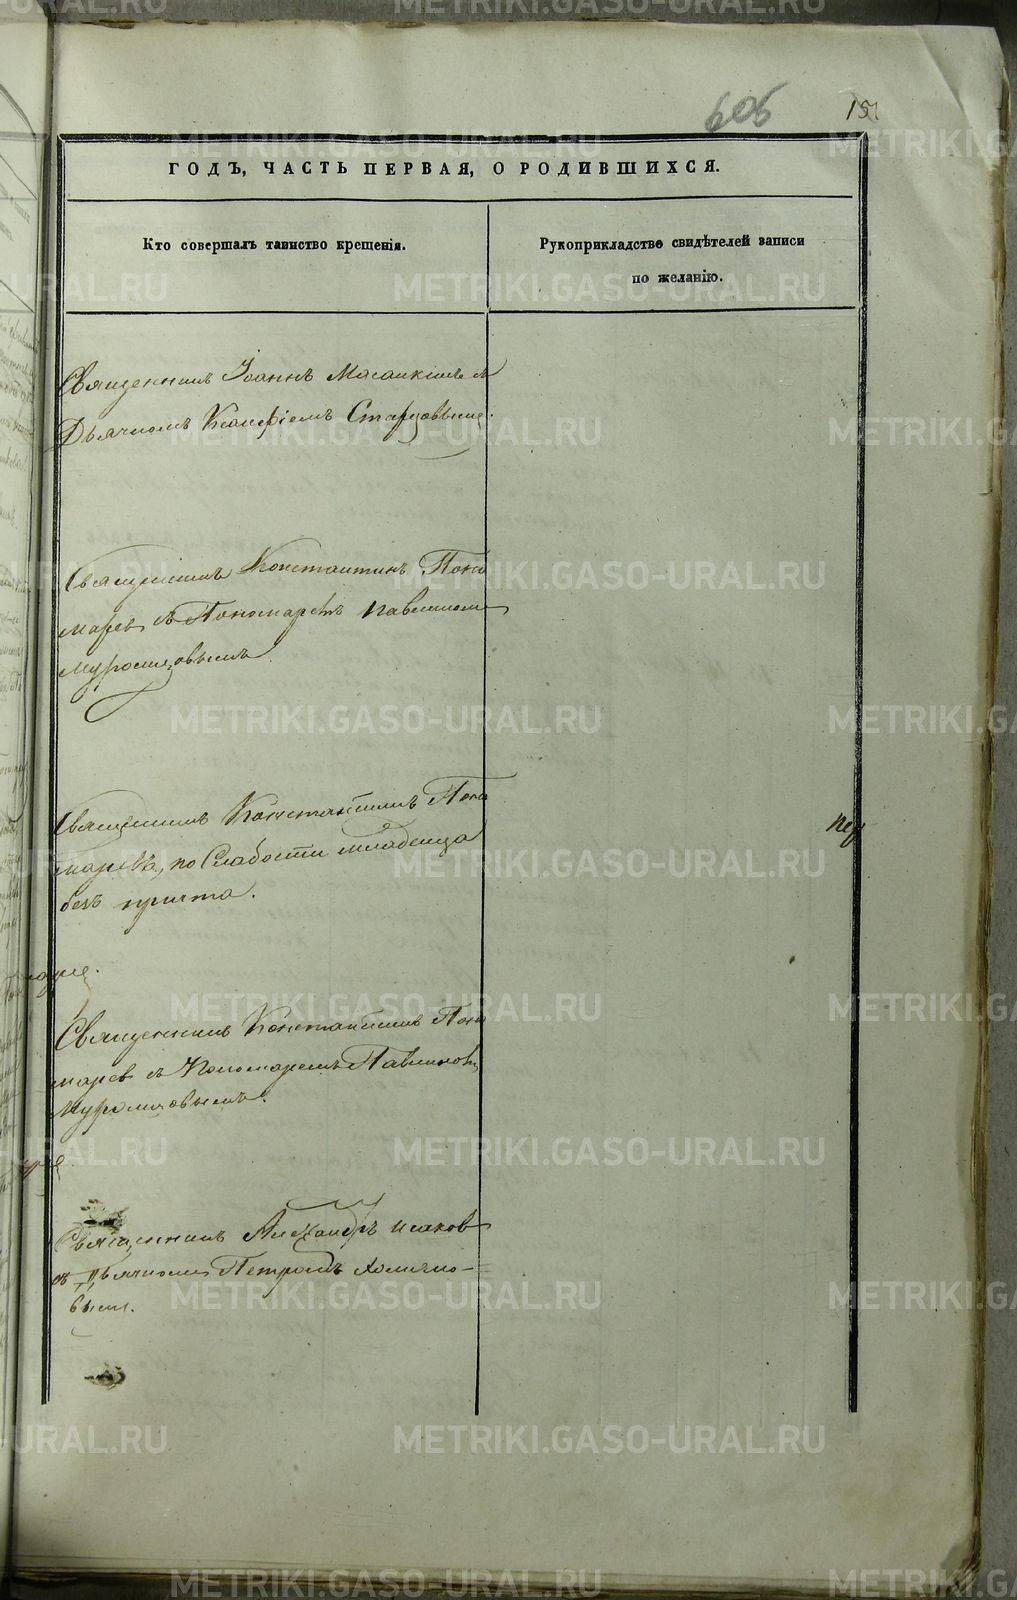 606
151
ГОДЪ, ЧАСТЬ ПЕРВАЯ, О РОДИВШИХСЯ.
Кто совершалъ таинство крещенія.
Рукоприкладство свидѣтелей записи
по желанію.
Священникъ Іоаннъ съ
Дьячкомъ Старцовымъ.
Священникъ Константинъ Поно
маревъ съ Пономаремъ Павлином
Муромцовымъ.
Священникъ Константинъ Поно
маревъ, по слабости младенца
безъ причта.
Священникъ Константинъ Поно
марев съ Пономаремъ Павлином
Муромцовымъ.
Священникъ Александръ Исаков
съ Дьячкомъ Петромъ Холмого-
METRIKI.GASO-URAL.RU